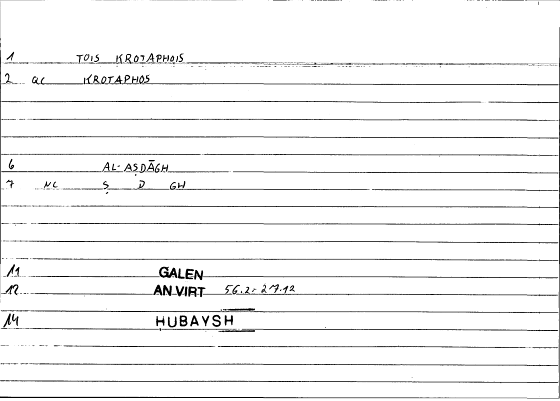 1 TOIS KROTAPHOIS
2 QC KROTAPHOS
6 AL-AṢDĀGH
7 NC Ṣ D GW
11 GALEN
12 AN VIRT 56.2 = 27.12
14 HUBAYSH